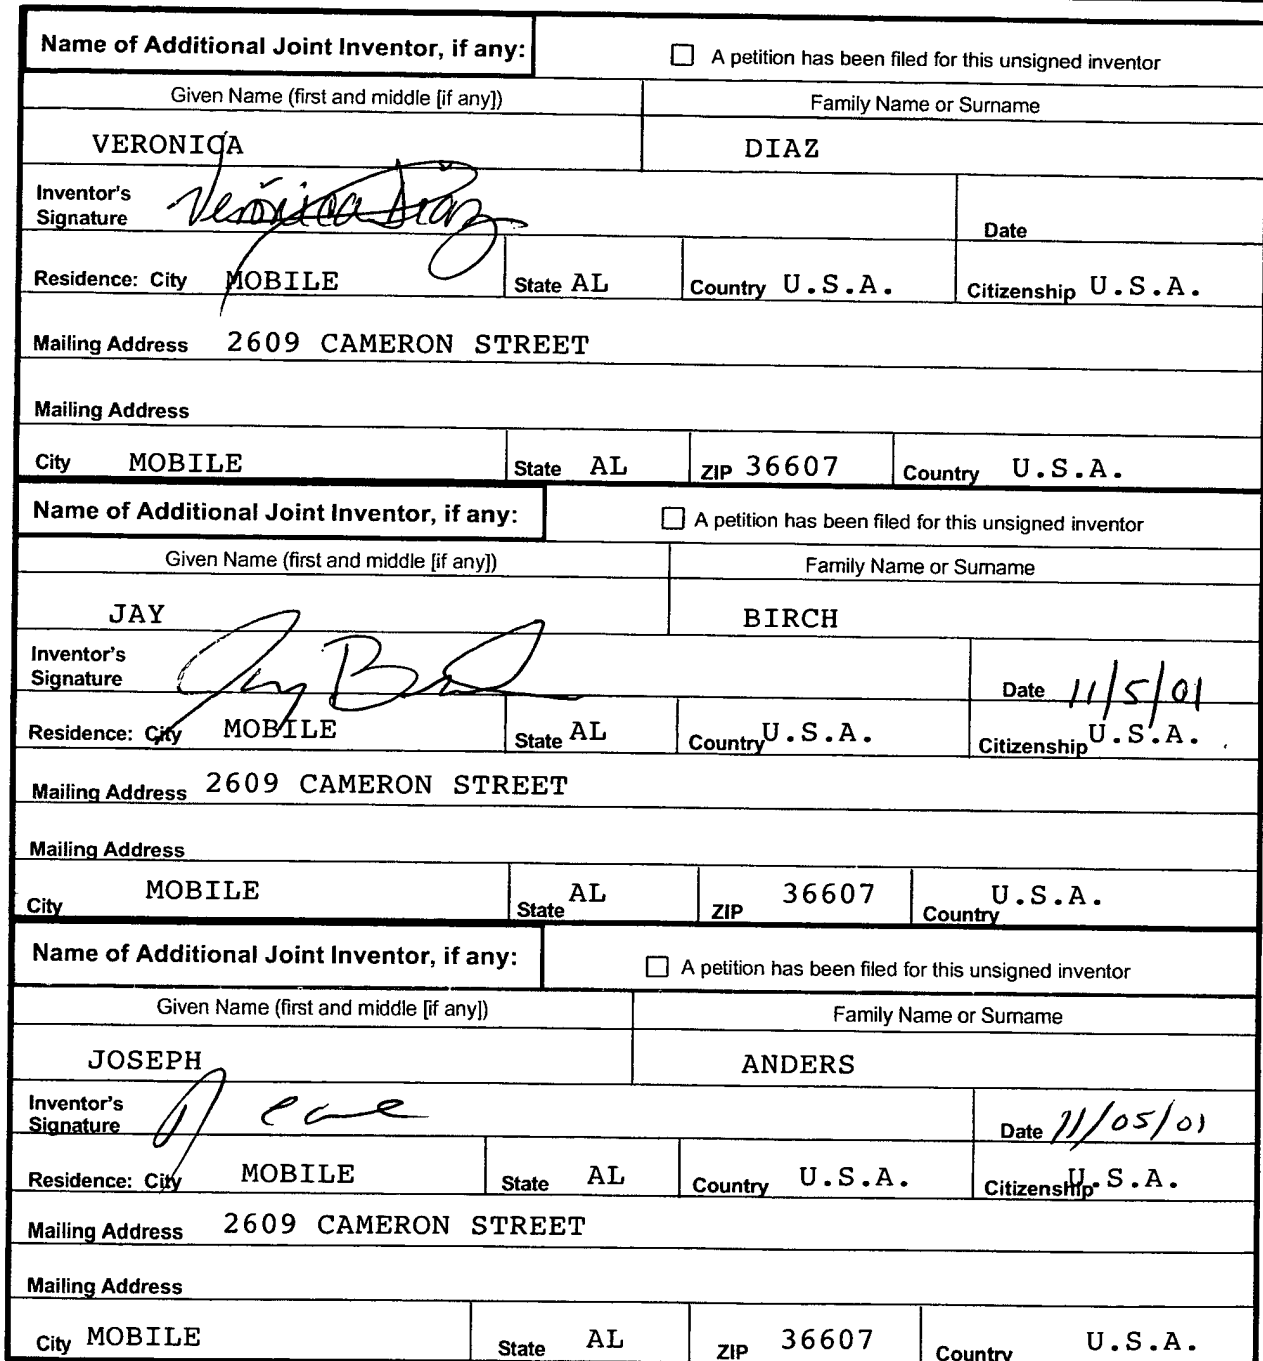 Name of Additional Joint Inventor, if any: A petition has been filed for this unsigned inventor
Given Name (first and middle [if any]) Family Name or Surname
VERONICA DIAZ
Inventor's
Signature Veronica Diaz Date
Residence: City MOBILE State AL Country U.S.A. Citizenship U.S.A.
Mailing Address 2609 CAMERON STREET
Mailing Address
City MOBILE State AL ZIP 36607 Country U.S.A.
Name of Additional Joint Inventor, if any: A petition has been filed for this unsigned inventor
Given Name (first and middle [if any]) Family Name or Surname
JAY BIRCH
Inventor's
Signature Jay Date 11/5/01
Residence: City MOBILE State AL Country U.S.A. Citizenship U.S.A.
Mailing Address 2609 CAMERON STREET
Mailing Address
City MOBILE State AL ZIP 36607 Country U.S.A.
Name of Additional Joint Inventor, if any: A petition has been filed for this unsigned inventor
Given Name (first and middle [if any]) Family Name or Surname
JOSEPH ANDERS
Inventor's
Signature Date 11/05/01
Residence: City MOBILE State AL Country U.S.A. Citizenship U.S.A.
Mailing Address 2609 CAMERON STREET
Mailing Address
City MOBILE State AL ZIP 36607 Country U.S.A.